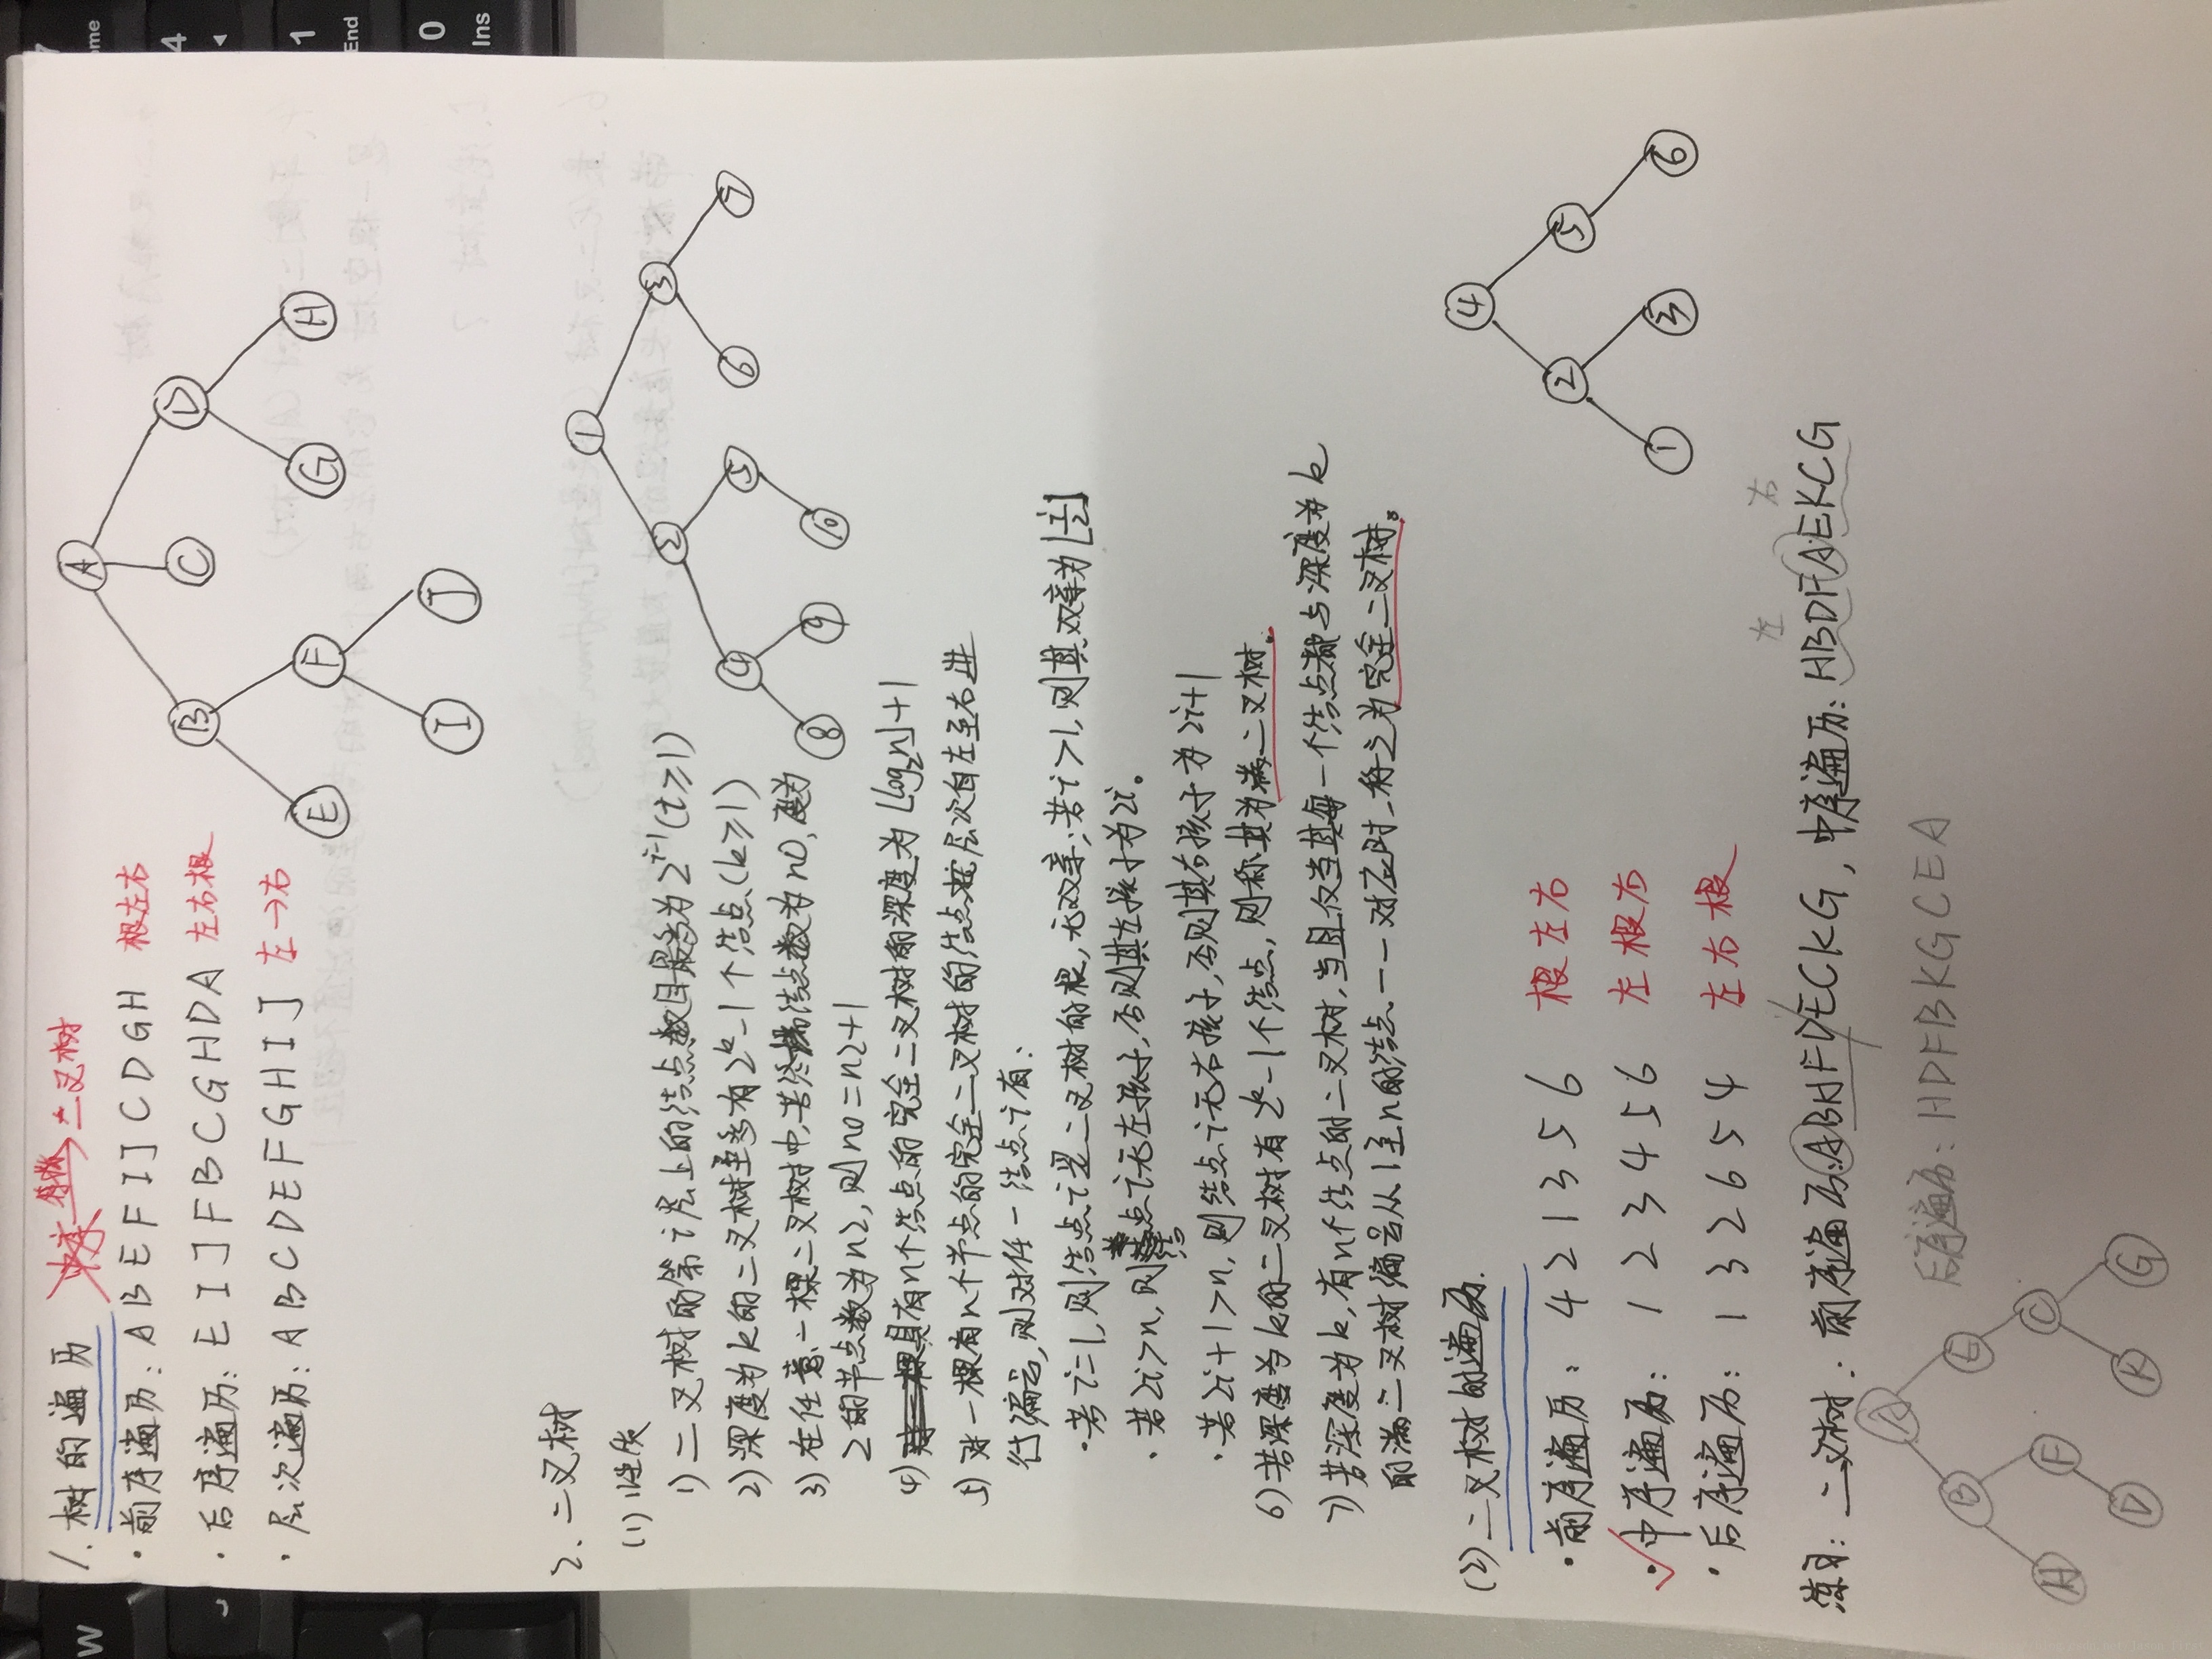 1. 树的遍历
二叉树
· 前序遍历: A B E F I J C D G H 根左右
· 后序遍历: E I J F B C G H D A 左右根
· 层次遍历: A B C D E F G H I J 左→右
A
B
C
D
E
F
G
H
I
J
2、二叉树
(1) 性质
1) 二叉树的第i层上的结点数目最多为2^{i-1}(i≥1)
2) 深度为k的二叉树至多有2^k-1个结点(k≥1)
3) 在任意一棵二叉树中,若终端结点数为n0,度为
2的节点数为n2,则n0=n2+1
4) 具有n个结点的完全二叉树的深度为⌊log₂n⌋+1
5) 对一棵有n个节点的完全二叉树的结点按层次自左至右进
行编号,则对任一结点i有:
·若i=1,则结点i是二叉树的根,无双亲;若i>1,则其双亲为⌊i/2⌋
·若2i>n,则结点i无左孩子,否则其左孩子为2i。
·若2i+1>n,则结点i无右孩子,否则其右孩子为2i+1
6) 若深度为k的二叉树有2^k-1个结点,则称其为满二叉树。
7) 若深度为k,有n个结点的二叉树,当且仅当其每一个结点都与深度为k
的满二叉树编号从1至n的结点一一对应时,称之为完全二叉树。
1
2
3
4
5
6
7
8
9
10
(2) 二叉树的遍历.
·前序遍历: 4 2 1 3 5 6 根左右
·中序遍历: 1 2 3 4 5 6 左根右
·后序遍历: 1 3 2 6 5 4 左右根
4
2
5
1
3
6
左 右
练习: 二叉树: 前序遍历:ABHFDECKG, 中序遍历:HBDFAEKCG
后序遍历: HDFBKGCEA
A
B
E
H
F
C
D
K
G
W
7
ome
4
1
End
0
Ins